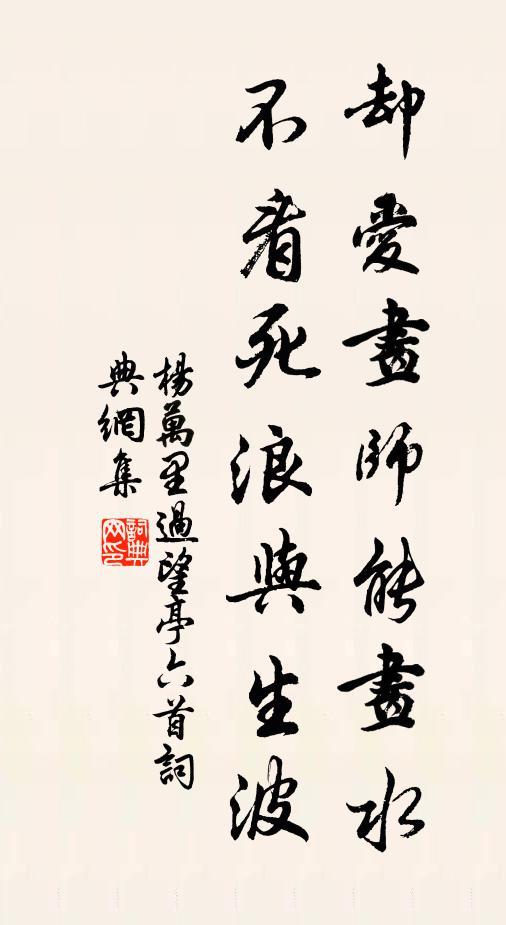 却愛畫師能畫水
不看死浪與生波
楊萬里過望亭六首詞
典網集
詞典网印